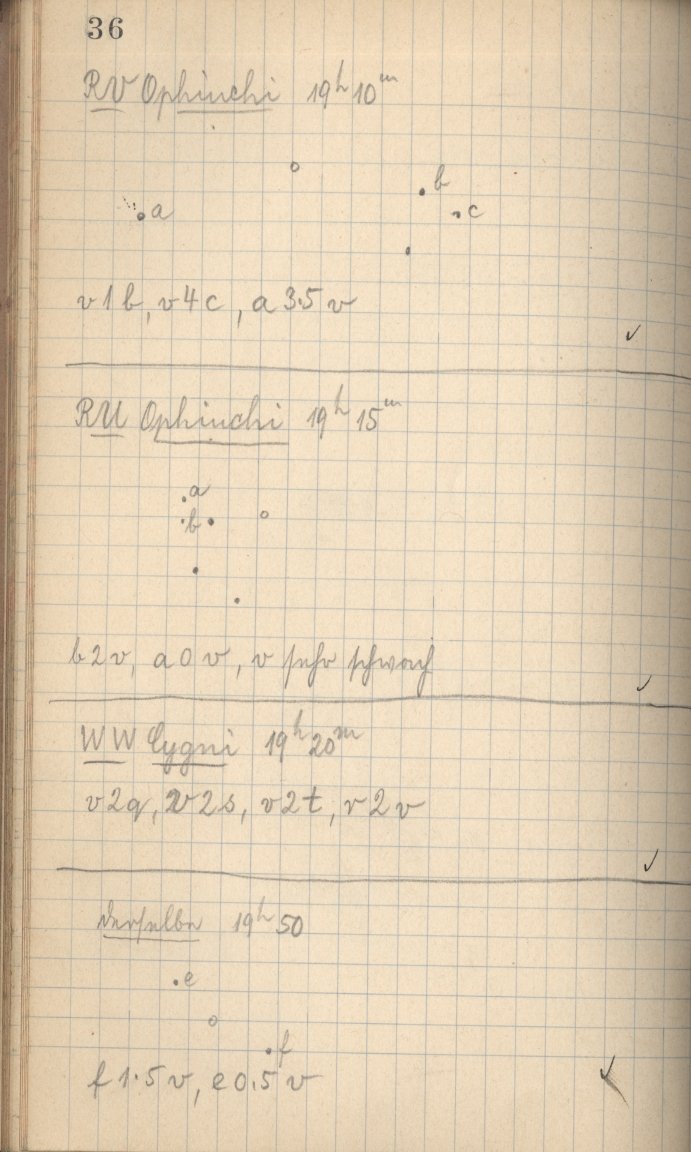 36
RV Ophiuchi 19h 10m
b
a
c
v 1 b, v 4 c, a 3.5 v
RU Ophiuchi 19h 15m
a
b
b 2 v, a 0 v, v sehr schwach
WW Cygni 19h 20m
v 2 q, v 2 s, v 2 t, r 2 v
derselbe 19h 50
e
f
f 1.5 v, e 0.5 v